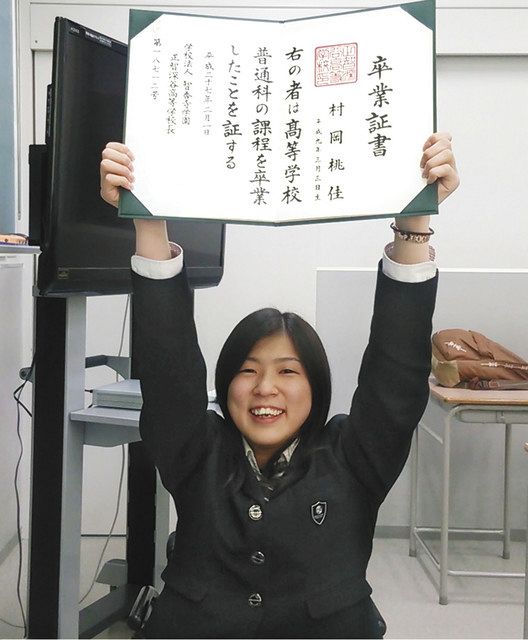 卒業証書
村岡桃佳
平成九年三月三日生
右の者は髙等学校
普通科の課程を卒業
したことを証する
平成二十七年二月一日
学校法人 智香寺学園
正智深谷高等学校長
第一八七一二号